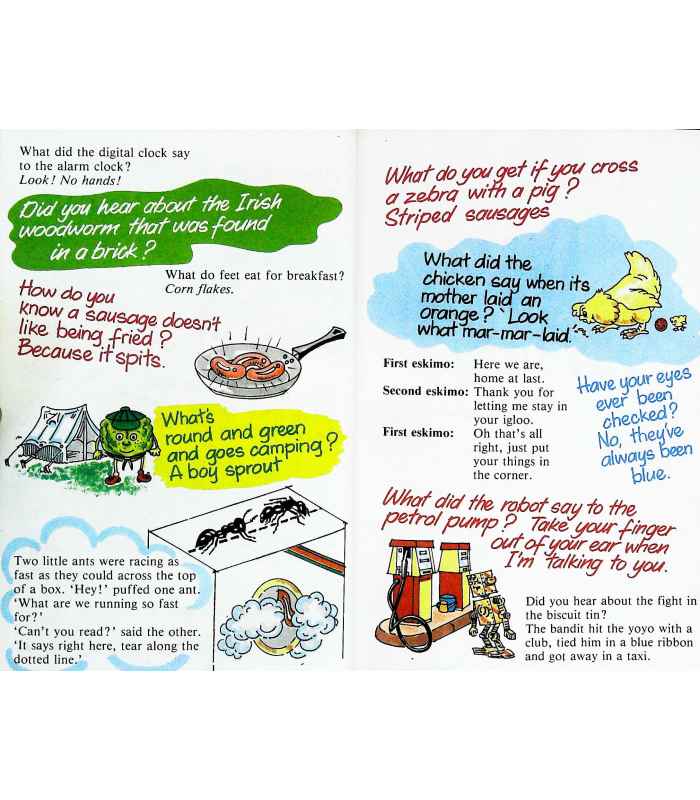 What did the digital clock say
to the alarm clock?
Look! No hands!
Did you hear about the Irish
woodworm that was found
in a brick?
What do feet eat for breakfast?
Corn flakes.
How do you
know a sausage doesn't
like being fried?
Because it spits.
What's
round and green
and goes camping?
A boy sprout
Two little ants were racing as
fast as they could across the top
of a box. 'Hey!' puffed one ant.
'What are we running so fast
for?'
'Can't you read?' said the other.
'It says right here, tear along the
dotted line.'
What do you get if you cross
a zebra with a pig?
Striped sausages
What did the
chicken say when its
mother laid an
orange? 'Look
what mar-mar-laid.'
First eskimo: Here we are,
home at last.
Second eskimo: Thank you for
letting me stay in
your igloo.
First eskimo: Oh that's all
right, just put
your things in
the corner.
Have your eyes
ever been
checked?
No, they've
always been
blue.
What did the robot say to the
petrol pump? Take your finger
out of your ear when
I'm talking to you.
Did you hear about the fight in
the biscuit tin?
The bandit hit the yoyo with a
club, tied him in a blue ribbon
and got away in a taxi.